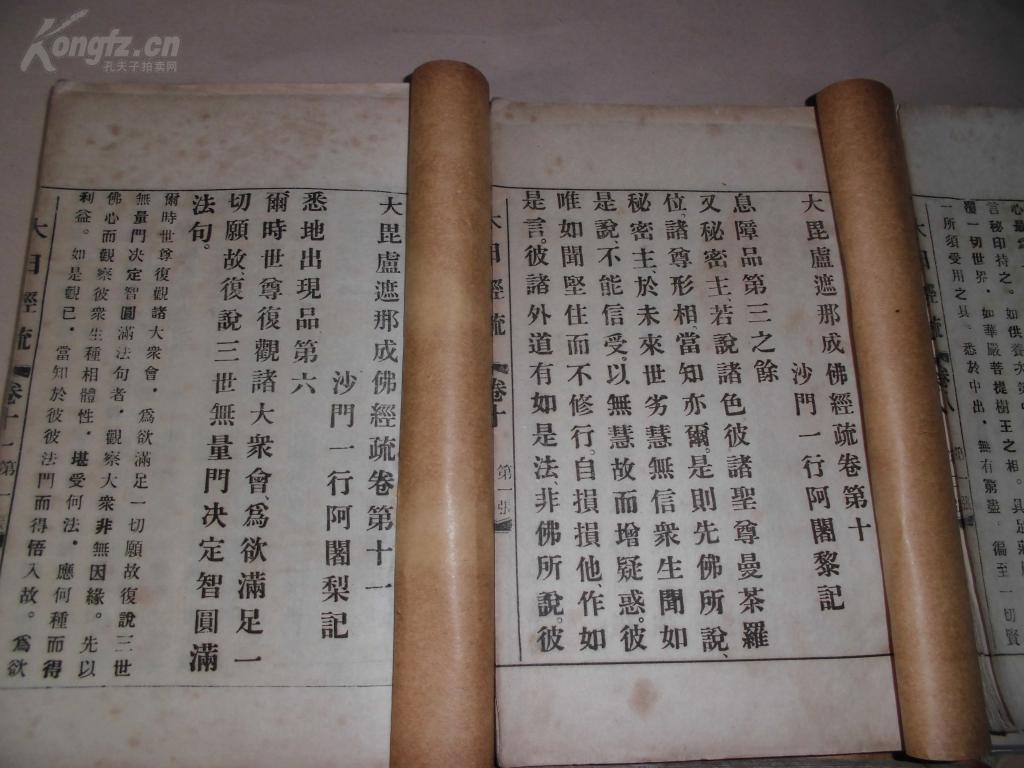 Kongfz.cn
孔夫子拍卖网
言秘印持之。如供養次第中
覆一切世界、如華嚴菩提樹王之相。具足
一所須受用之具、悉於中出、無有窮盡、徧至一切賢
大毘盧遮那成佛經疏卷第十
沙門一行阿闍黎記
息障品第三之餘
又秘密主、若說諸色彼諸聖尊曼茶羅
位、諸尊形相、當知亦爾。是則先佛所說、
秘密主、於未來世劣慧無信衆生聞如
是說、不能信受。以無慧故而增疑惑。彼
唯如聞堅住而不修行。自損損他、作如
是言。彼諸外道有如是法、非佛所說。彼
大日經疏
卷十
第一張
大毘盧遮那成佛經疏卷第十一
沙門一行阿闍梨記
悉地出現品、第六
爾時世尊、復觀諸大衆會、爲欲滿足一
切願故、復說三世無量門决定智圓滿
法句。
爾時世尊復觀諸大衆會，爲欲滿足一切願故復說三世
無量門决定智圓滿法句者，觀察大衆非無因緣。先以
佛心而觀察彼衆生種種相體性，堪受何法，應何種而得
利益。如是觀已，當知於彼彼法門而得悟入故。爲欲
大日經疏
卷十一
第一